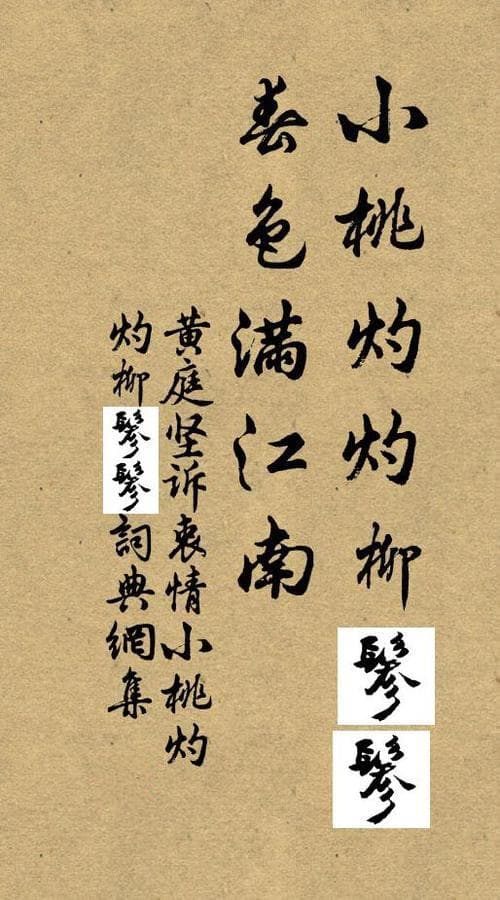 小桃灼灼柳鬖鬖
春色满江南
黄庭坚诉衷情小桃灼
灼柳鬖鬖詞典網集